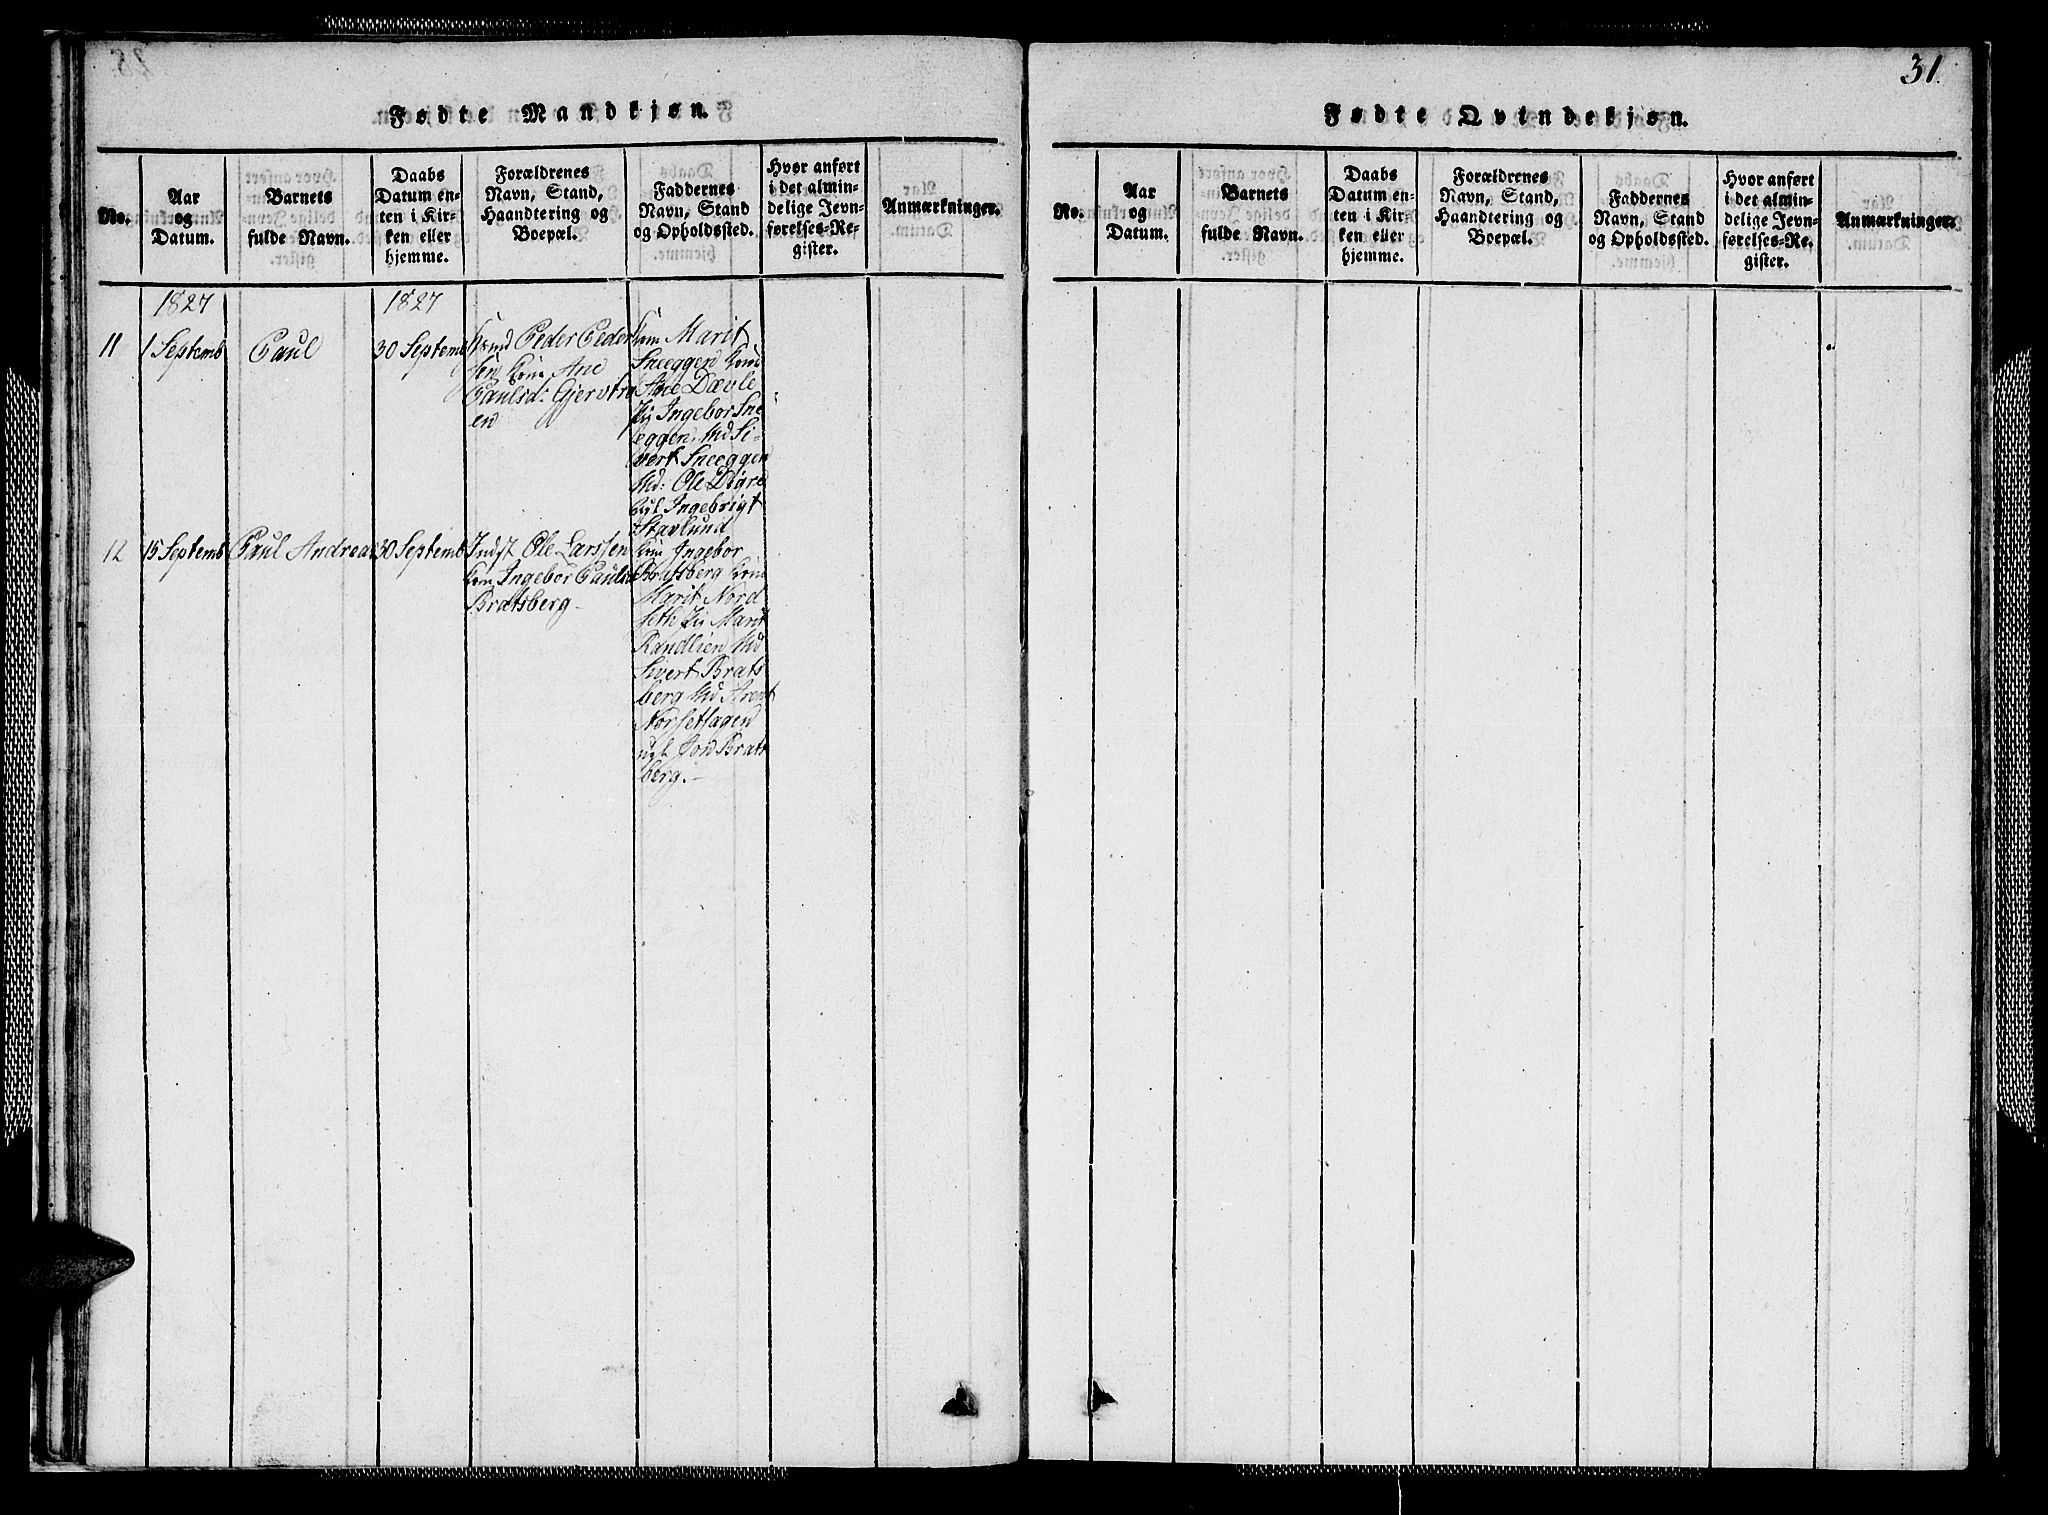 31.
Fødte Mandkjøn.
No.
Aar
og
Datum.
Barnets
fulde Navn.
Daabs
Datum en-
ten i Kir-
ken eller
hjemme.
Forældrenes
Navn, Stand,
Haandtering og
Boepæl.
Faddernes
Navn, Stand
og Opholdssted.
Hvor anført
i det almin-
delige Jevn-
førelses-Re-
gister.
Anmærkninger.
1827
1827
11
1 Septemb
Paul
30 Septemb
Peder Peder
sen kone Ane
Paulsd: Gjervtro
en
kone Marit
Sneeggen kone
Ane Døvle
Pii Ingebor Sne
eggen. Md Si-
vert Sneeggen
Md: Ole Digre
Ingebrigt
Stavlund
12
15 Septemb
Paul Andreas
30 Septemb
Indst Ole Larssen
kone Ingebor Paulsd
Bratsberg -
kone Ingebor
Bratsberg kone
Marit Nord
seth Pii Marit
Randlien Md
Sivert Brats
berg Md Arent
Norsethagen
Jon Brats
berg. -
Fødte Qvindekjøn.
No.
Aar
og
Datum.
Barnets
fulde Navn.
Daabs
Datum en-
ten i Kir-
ken eller
hjemme.
Forældrenes
Navn, Stand,
Haandtering og
Boepæl.
Faddernes
Navn, Stand
og Opholdssted.
Hvor anført
i det almin-
delige Jevn-
førelses-Re-
gister.
Anmærkninger.